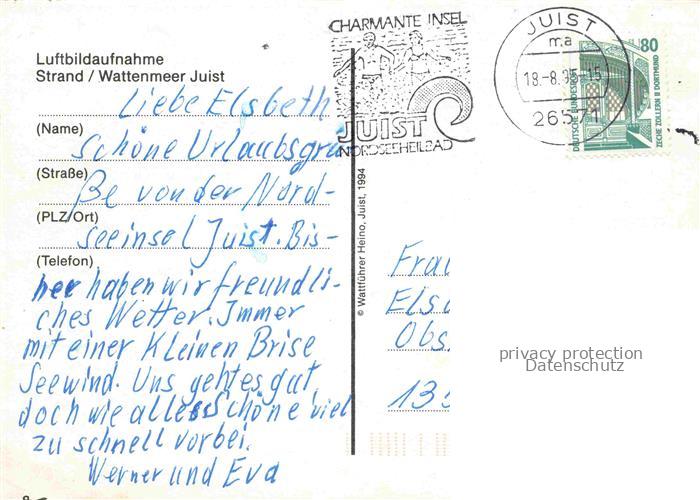 CHARMANTE INSEL
JUIST
NORDSEEHEILBAD
JUIST
ma
18.-8.95-15
26571
80
DEUTSCHE BUNDESPOST
ZECHE ZOLLERN II DORTMUND
Luftbildaufnahme
Strand / Wattenmeer Juist
Liebe Elsbeth
(Name)
Schöne Urlaubsgrü
(Straße)
ße von der Nord-
(PLZ/Ort)
seeinsel Juist. Bis-
(Telefon)
her haben wir freundli-
ches Wetter. Immer
mit einer Kleinen Brise
Seewind. Uns geht es gut,
doch wie alles Schöne viel
zu schnell vorbei.
Werner und Eva
© Wattführer Heino, Juist, 1994
Frau
Els
Obs
13
privacy protection
Datenschutz